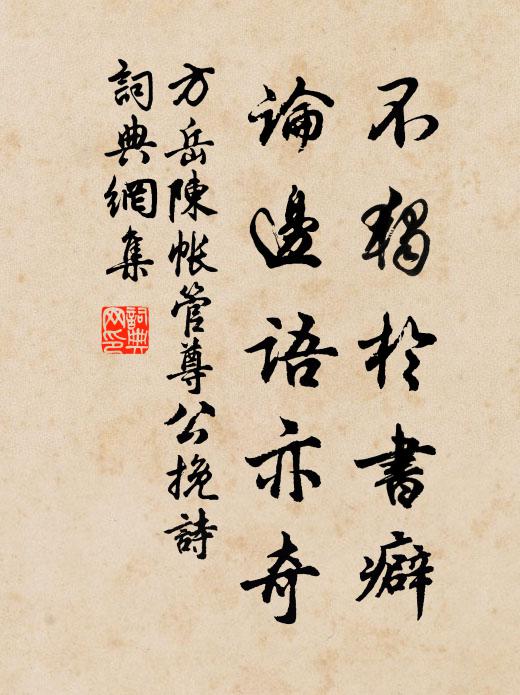 不獨於書癖
論邊語亦奇
方岳陳帐管尊公挽詩
詞典網集
詞典网印